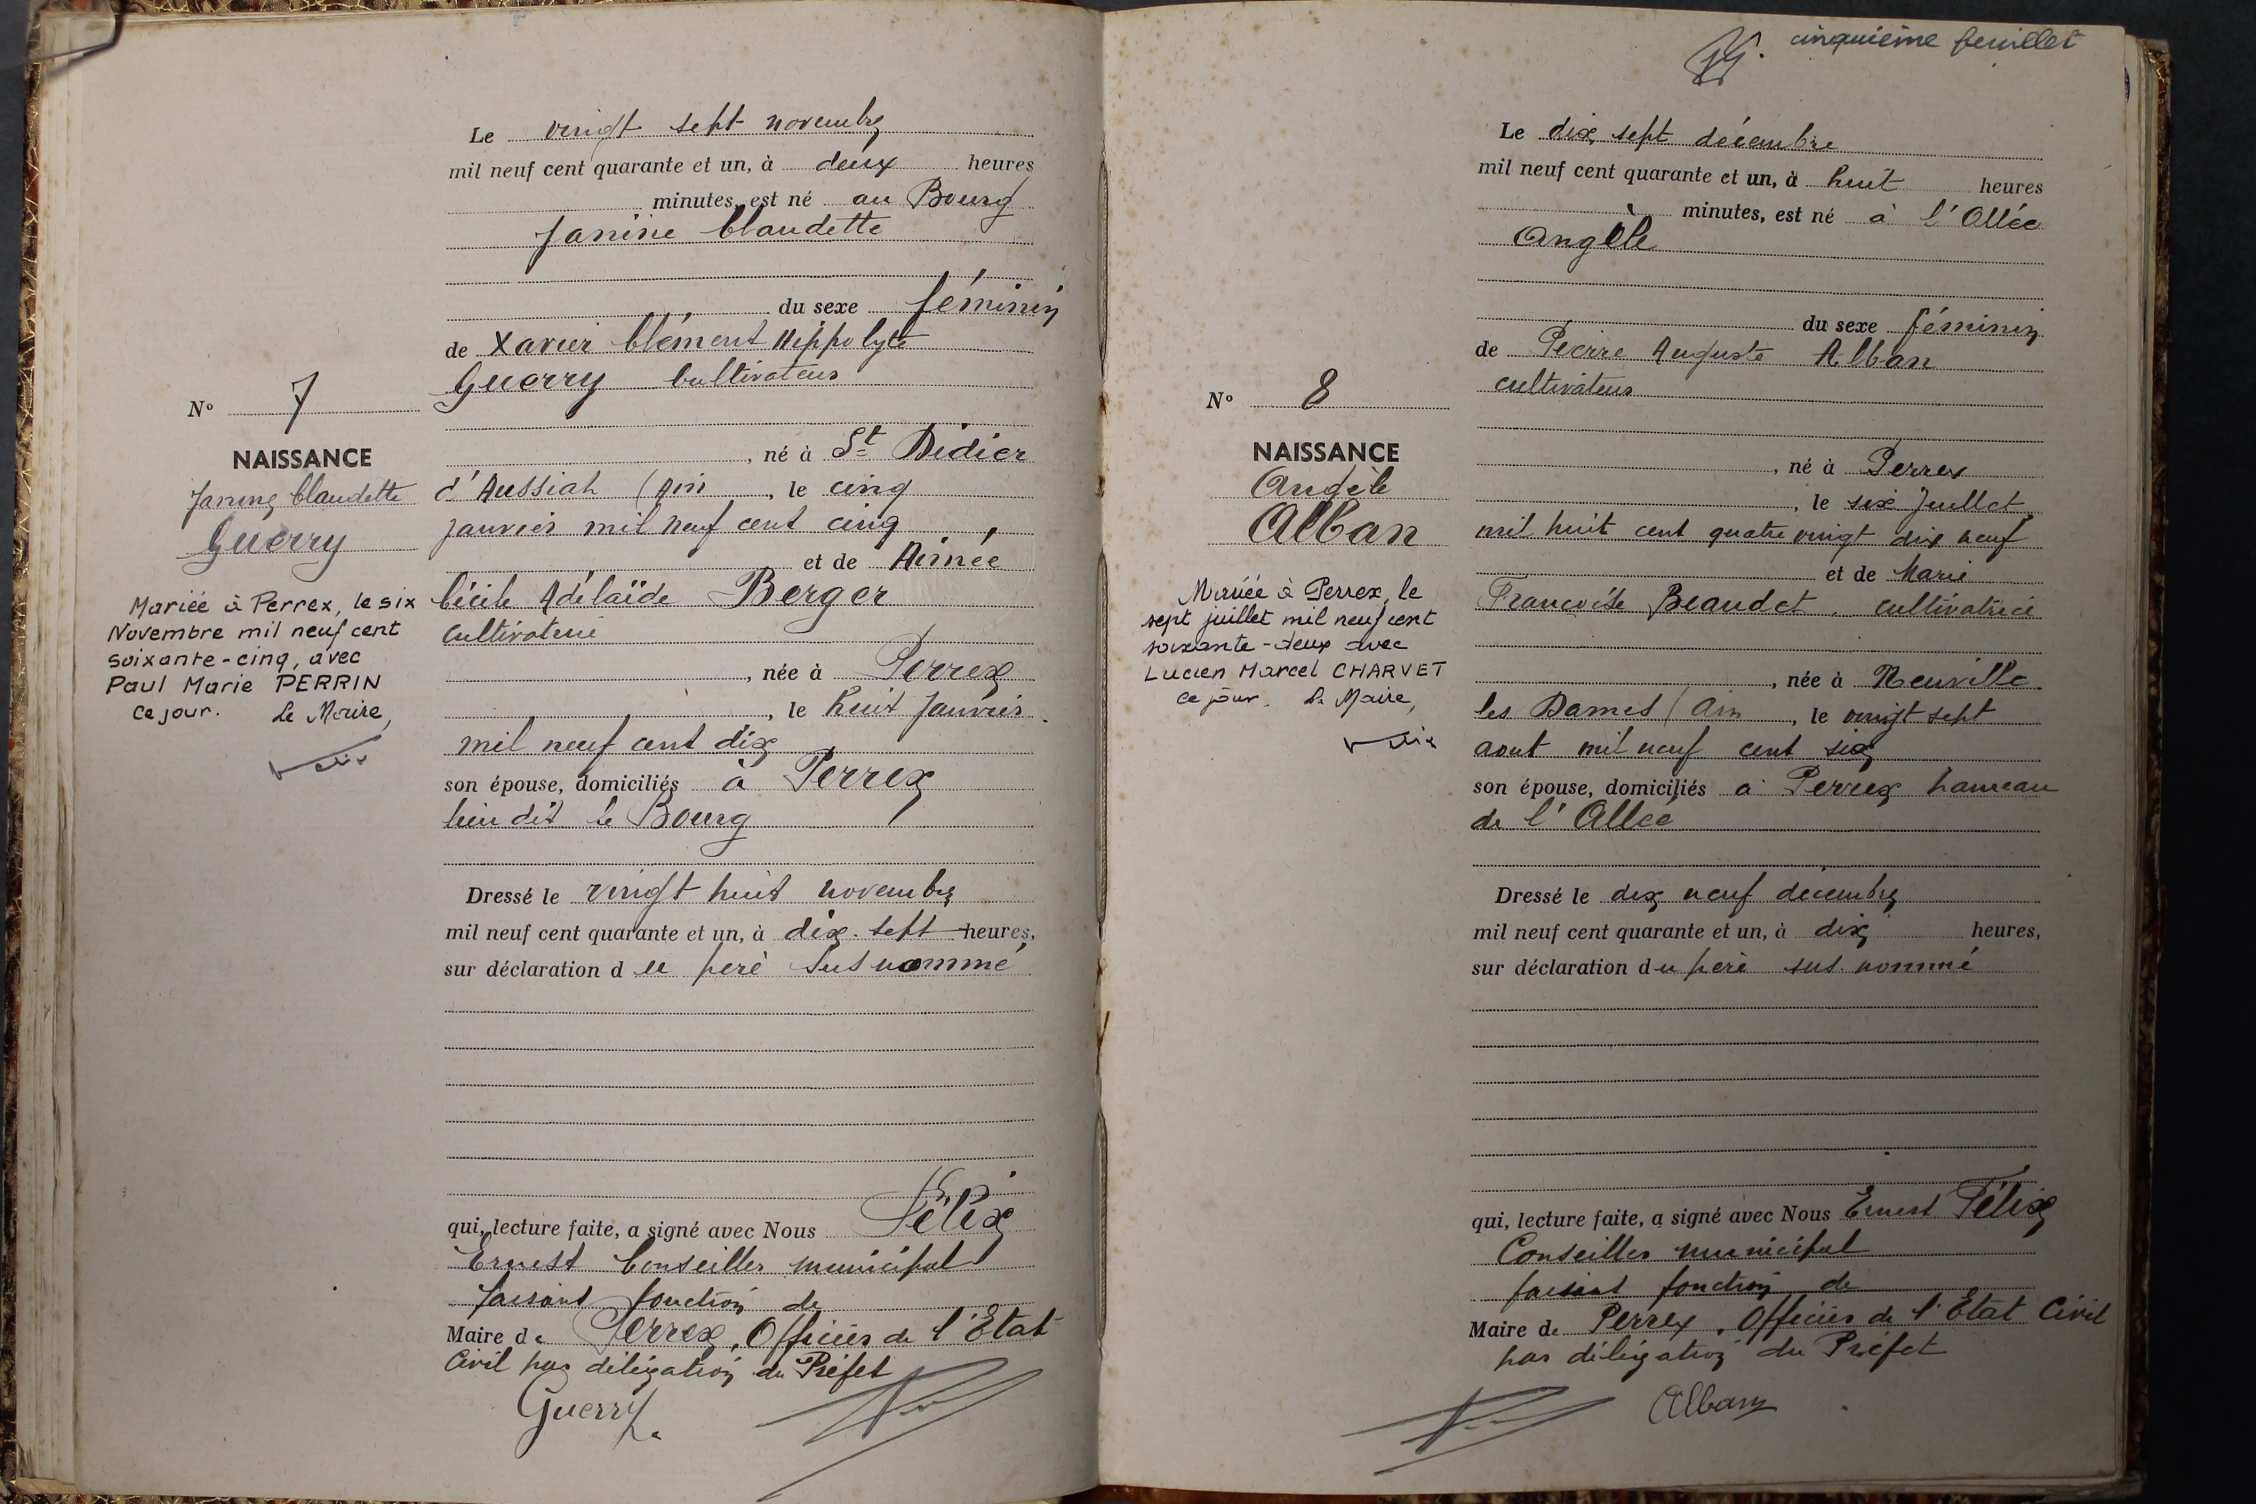 Le vingt sept novembre
mil neuf cent quarante et un, à deux heures
minutes, est né au Bourg
Janine Claudette
du sexe féminin
de Xavier Clément Hippolyte
Guerry Cultivateur
N° 7
NAISSANCE
Janine Claudette
Guerry
Mariée à Perrex, le six
Novembre mil neuf cent
soixante-cinq, avec
Paul Marie PERRIN
Ce jour. Le Maire,
, né à St Didier
d'Aussiat (Ain , le cinq
janvier mil neuf cent cinq
et de Aimée
Cécile Adélaïde Berger
Cultivatrice
, née à Perrex
, le huit Janvier
mil neuf cent dix
son épouse, domiciliés à Perrex
lieu dit le Bourg
Dressé le vingt huit novembre
mil neuf cent quarante et un, à dix-sept heures,
sur déclaration du père sus nommé
qui, lecture faite, a signé avec Nous Félix
Ernest Conseiller municipal
faisant fonction de
Maire de Perrex, Officier de l'Etat
Civil par déligation du Préfet
Guerry
cinquième feuillet
Le dix sept décembre
mil neuf cent quarante et un, à huit heures
minutes, est né à l'Allée
Angèle
du sexe féminin
de Pierre Auguste Alban
cultivateur
N° 8
NAISSANCE
Angèle
Alban
Mariée à Perrex, le
sept juillet mil neuf cent
soixante-deux avec
Lucien Marcel CHARVET
Ce jour. Le Maire,
, né à Perrex
, le six Juillet
mil huit cent quatre vingt dix neuf
et de Marie
Françoise Beaudet, cultivatrice
, née à Neuville
les Dames (Ain , le vingt sept
aout mil neuf cent six
son épouse, domiciliés à Perrex hameau
de l'Allée
Dressé le dix neuf décembre
mil neuf cent quarante et un, à dix heures,
sur déclaration du père sus-nommé
qui, lecture faite, a signé avec Nous Ernest Félix
Conseiller municipal
faisant fonction de
Maire de Perrex, Officier de l'Etat Civil
par déligation du Préfet
Alban